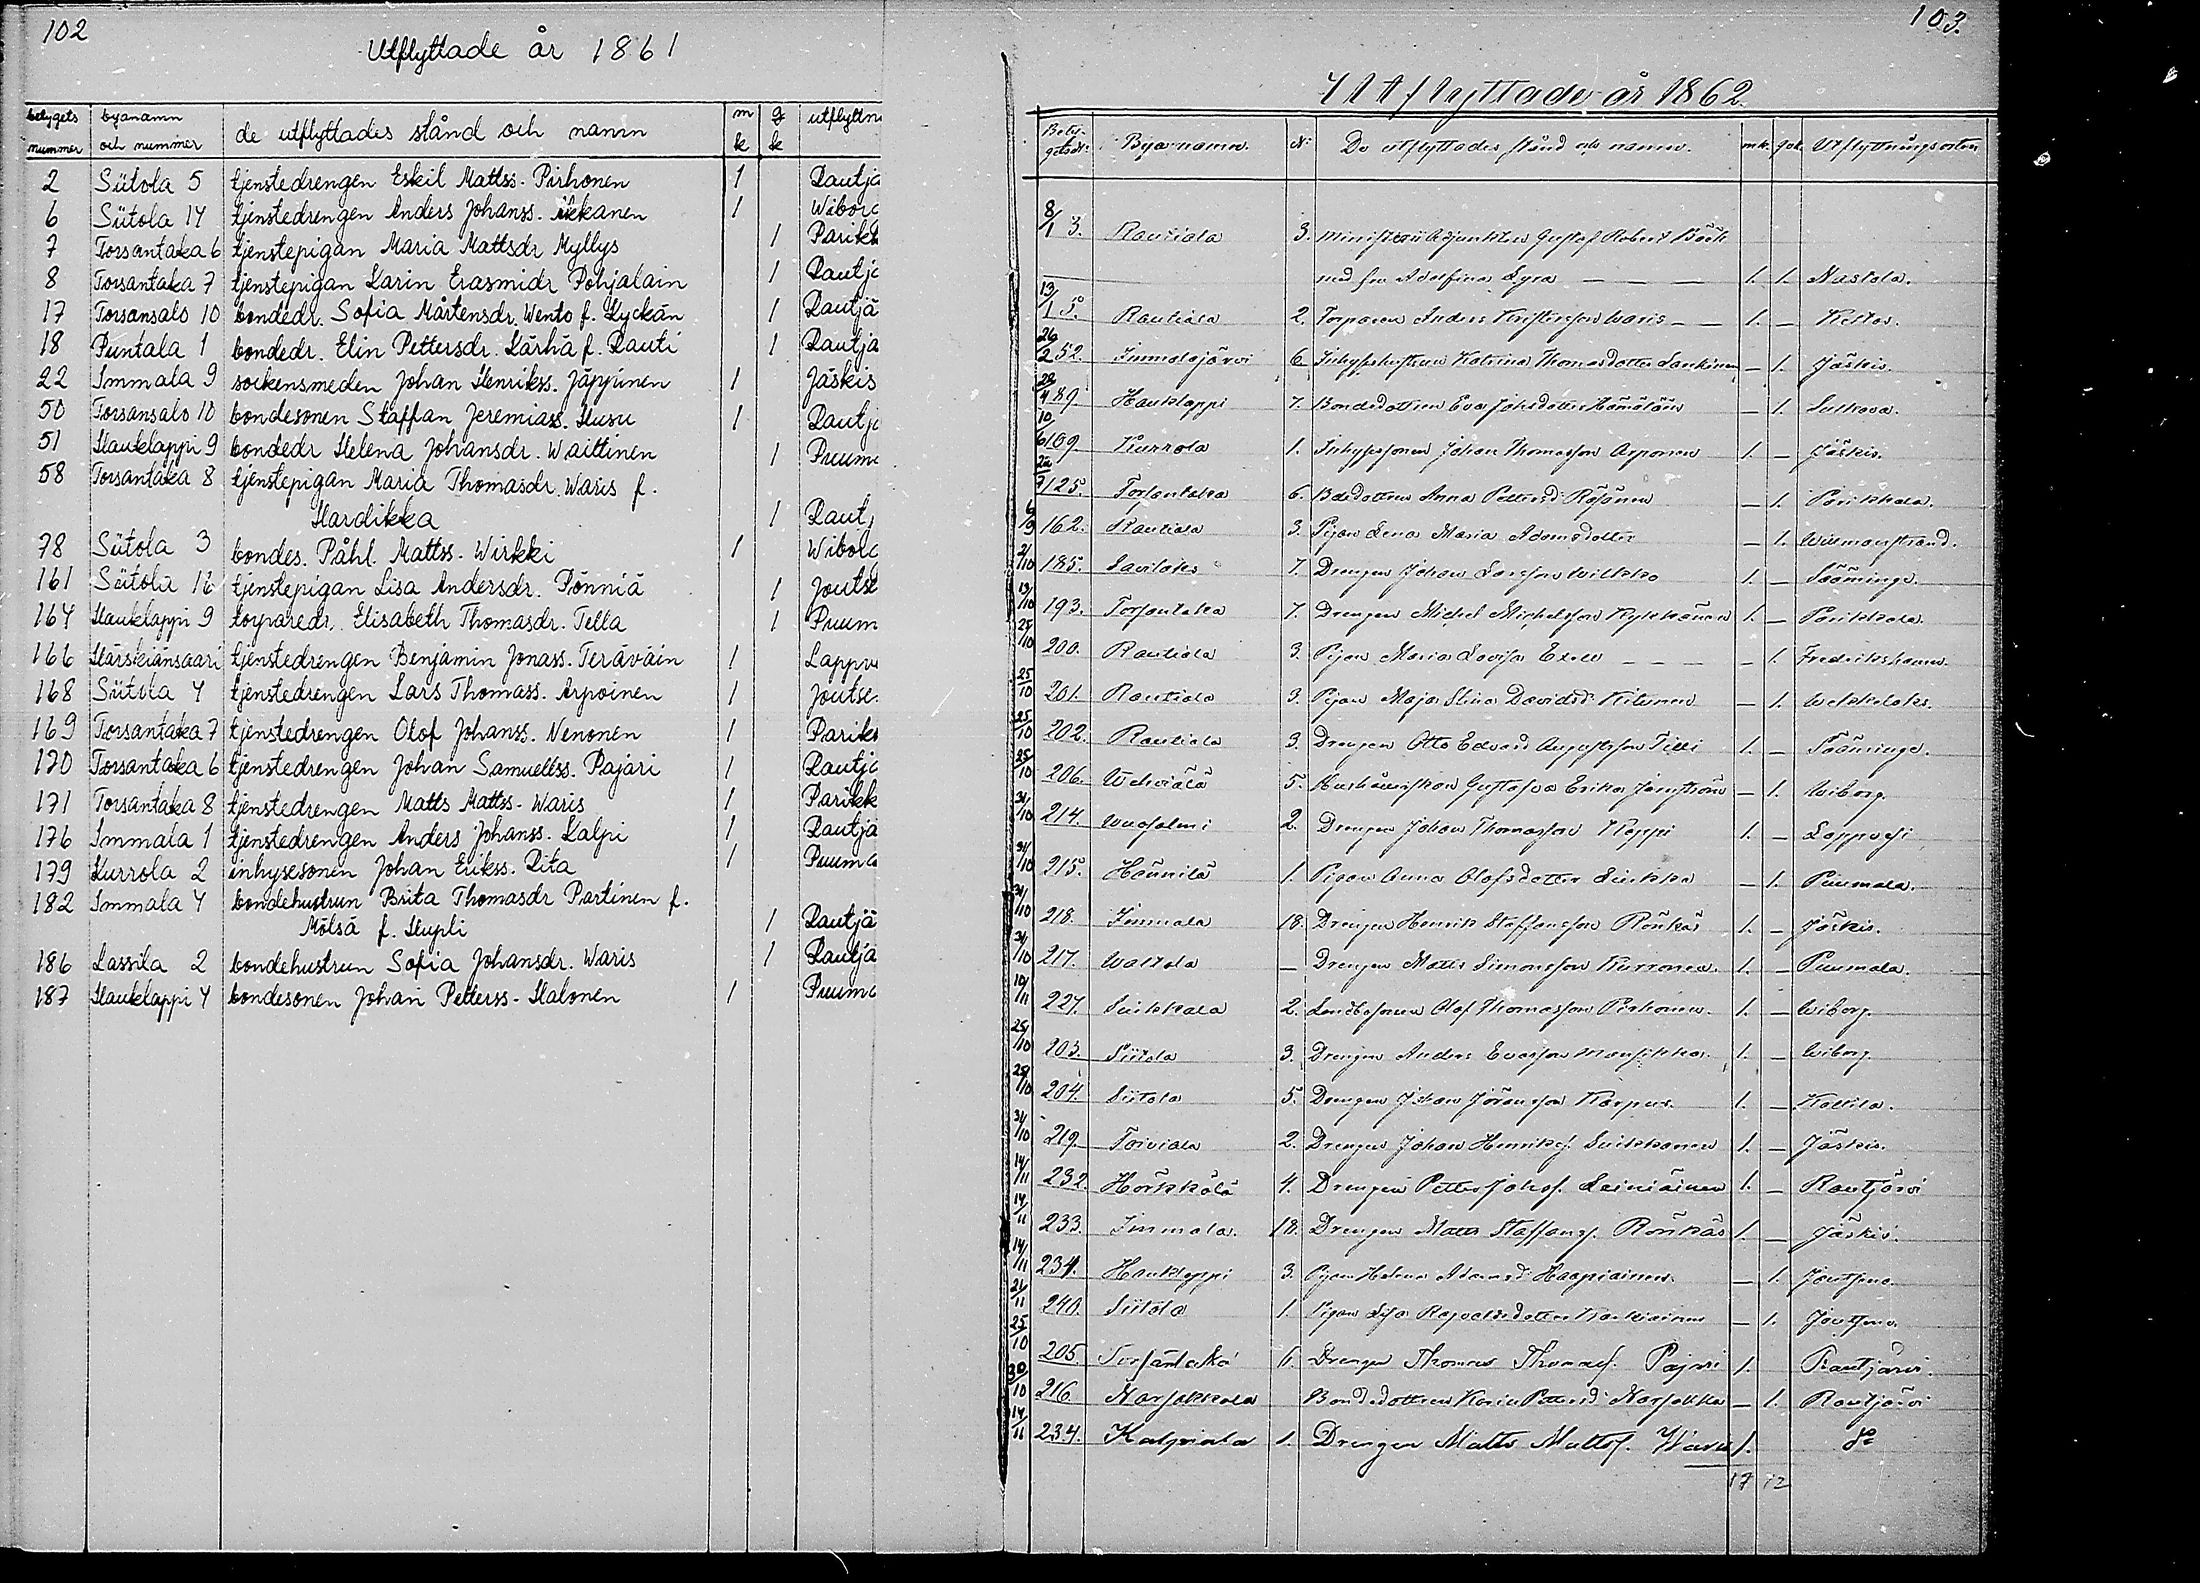 102
Utflyttade år 1861
betygets nummer byanamn och nummer de utflyttades stånd och namn mk qk utflyttn
2 Siitola 5 tjenstedrengen Eskil Mattss. Pirhonen 1 Rautjä
6 Siitola 14 tjenstedrengen Anders Johanss. Ikkanen 1 Wiborg
7 Torsantaka 6 tjenstepigan Maria Mattsdr Myllys 1 Parikk
8 Torsantaka 7 tjenstepigan Karin Erasmidr Pohjalain 1 Rautjä
17 Torsansalo 10 bondedr. Sofia Mårtensdr. Wento f. Kyckän 1 Rautjä
18 Puntala 1 bondedr. Elin Pettersdr. Kärhä f. Rauti 1 Rautjä
22 Immala 9 sockensmeden Johan Henrikss. Jäppinen 1 Jäskis
50 Torsansalo 10 bondesonen Staffan Jeremiass. Husu 1 Rautjä
51 Hauklappi 9 bondedr Helena Johansdr. Waittinen 1 Puuma
58 Torsantaka 8 tjenstepigan Maria Thomasdr. Waris f.
Hardikka 1 Rautj
78 Siitola 3 bondes. Påhl. Mattss. Wirkki 1 Wibolg
161 Siitola 16 tjenstepigan Lisa Andersdr. Pönniä 1 Joutse
164 Hauklappi 9 torparedr. Elisabeth Thomasdr. Tella 1 Puum
166 Härskiänsaari tjenstedrengen Benjamin Jonass. Teräväin 1 Lappv
168 Siitola 4 tjenstedrengen Lars Thomass. Arpoinen 1 Joutse
169 Torsantaka 7 tjenstedrengen Olof Johanss. Nenonen 1 Parikk
170 Torsantaka 6 tjenstedrengen Johan Samuelss. Pajari 1 Rautjä
171 Torsantaka 8 tjenstedrengen Matts Mattss. Waris 1 Parikk
176 Immala 1 tjenstedrengen Anders Johanss. Kalpi 1 Rautjä
179 Kurrola 2 inhysesonen Johan Erikss. Rita 1 Puuma
182 Immala 4 bondehustrun Brita Thomasdr Partinen f.
Mölsä f. Hupli 1 Rautjä
186 Lassila 2 bondehustrun Sofia Johansdr. Waris 1 Rautjä
187 Hauklappi 4 bondesonen Johan Petterss. Halonen 1 Puuma
103.
Utflyttade år 1862.
Bety-gets № Byanamn. № De utflyttades stånd och namn. mk. qk. Utflyttningsorten
8/1 3. Rautiala 3. Ministerii Adjunkten Gustaf Robert Böök
med fru Adolfina Lyra 1. 1. Nastola.
13/1 5. Rautiala 2. Torparen Anders Christersson Waris 1. —
26/2 52. Immalajärvi 6. Inhyseshustrun Katrina Thomasdotter Lankinen — 1. Jäskis.
22/4 89. Hauklappi 7. Bondedottren Eva Johsdotter Hämäläin — 1. Sulkava.
10/6 109. Kurrola 1. Inhysessonen Johan Thomasson Arponen 1. — Jäskis.
22/7 125. Torsantaka 6. Bdedottren Anna Pettersd: Räsänen — 1. Parikkala.
6/9 162. Rautiala 3. Pigan Lena Maria Adamsdotter — 1. Willmanstrand.
2/10 185. Savilaks 7. Drengen Johan Larsson Wilkko 1. — Sääminge.
13/10 193. Torsantaka 7. Drengen Michel Michelsson Kykkänen 1. — Parikkala.
25/10 200. Rautiala 3. Pigan Maria Lovisa — 1. Fredrikshamn.
25/10 201. Rautiala 3. Pigan Maja Stina Davidsd: — 1. Wekkelaks.
25/10 202. Rautiala 3. Drengen Otto Edvard Augustsson Tilli 1. — Sääminge.
25/10 206. 5. Hushållerskan Gustafva Erika — 1. Wiborg.
31/10 214. Wuosalmi 2. Drengen Johan Thomasson Kappi 1. — Lappvesi
31/10 215. Hännilä 1. Pigan Anna Olofsdotter Suikka — 1. Puumala.
31/10 218. Immala 18. Drengen Henrik Staffansson Rönkäs 1. — Jäskis.
31/10 217. Waltola — Drengen Matts Simonsson Kurronen. 1. — Puumala.
10/11 227. Suikkala 2. Landbosonen Olof Thomasson Pirhonen. 1. — Wiborg.
25/10 203. Siitola 3. Drengen Anders Evasson Mansikka. 1. — Wiborg
25/10 204. Siitola 5. Drengen Johan Jöransson Karpus. 1. —
31/10 219. Toiviala 2. Drengen Johan Henrikss. Suikkanen 1. — Jäskis.
14/11 232. Härkkälä 4. Drengen Petter Johss. Lainiäinen 1. — Rautjärvi
14/11 233. Immala. 18. Drengen Matts Staffanss. Rönkäs 1. — Jäskis.
14/11 234. Hauklappi 3. Pigan Helena Adamsd: Haapiainen. — 1. Joutseno.
21/11 240. Siitola 1. Pigan Lisa Karhiainen — 1. Joutseno.
25/10 205. Torsantaka 6. Drengen Thomas Thomass. Pajari 1. Rautjärvi.
30/10 216. Narsakkala Bondedottren Karin Pettersd: Narsakka — 1. Rautjärvi
14/11 234. Kalpiala 1. Drengen Matts Mattss. Waris 1. do
17 12